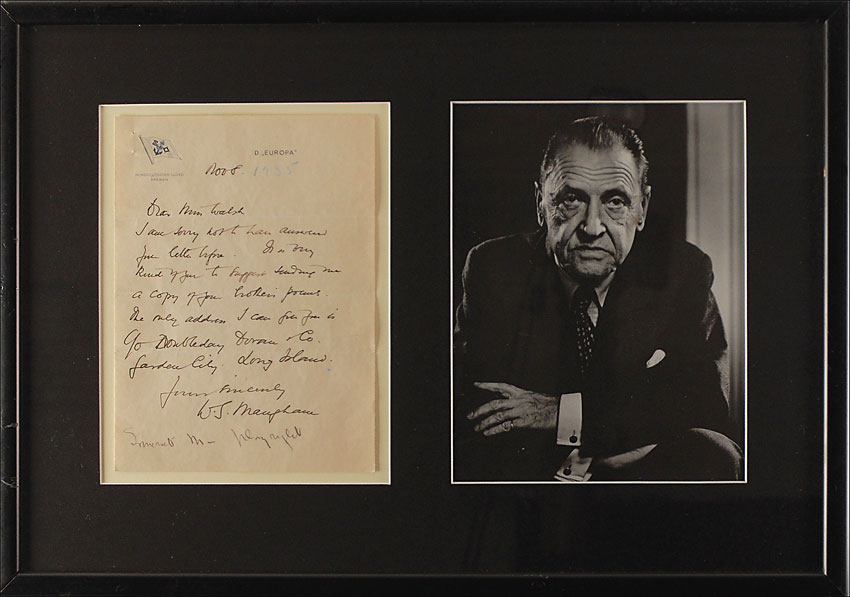 D. „EUROPA"
NORDDEUTSCHER LLOYD
BREMEN
Nov 8. 1935
Dear Miss Walsh
I am sorry not to have answered
your letter before. It is very
kind of you to suggest sending me
a copy of your brother's poems.
The only address I can give you is
c/o Doubleday Doran & Co.
Garden City Long Island.
Yours sincerely
W. S. Maugham
Somerset M— playright